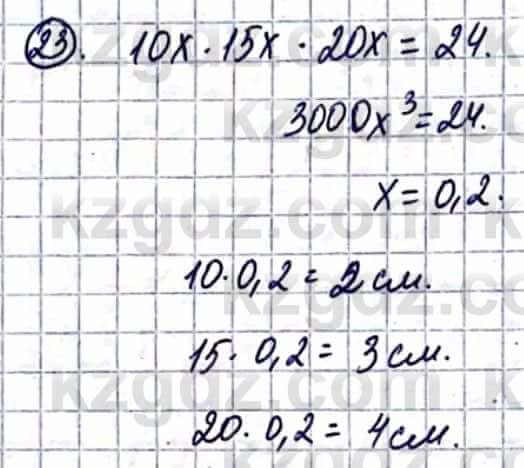 23. 10x · 15x · 20x = 24.
3000x³ = 24.
x = 0,2.
10 · 0,2 = 2 см.
15 · 0,2 = 3 см.
20 · 0,2 = 4 см.
kzgdz.com